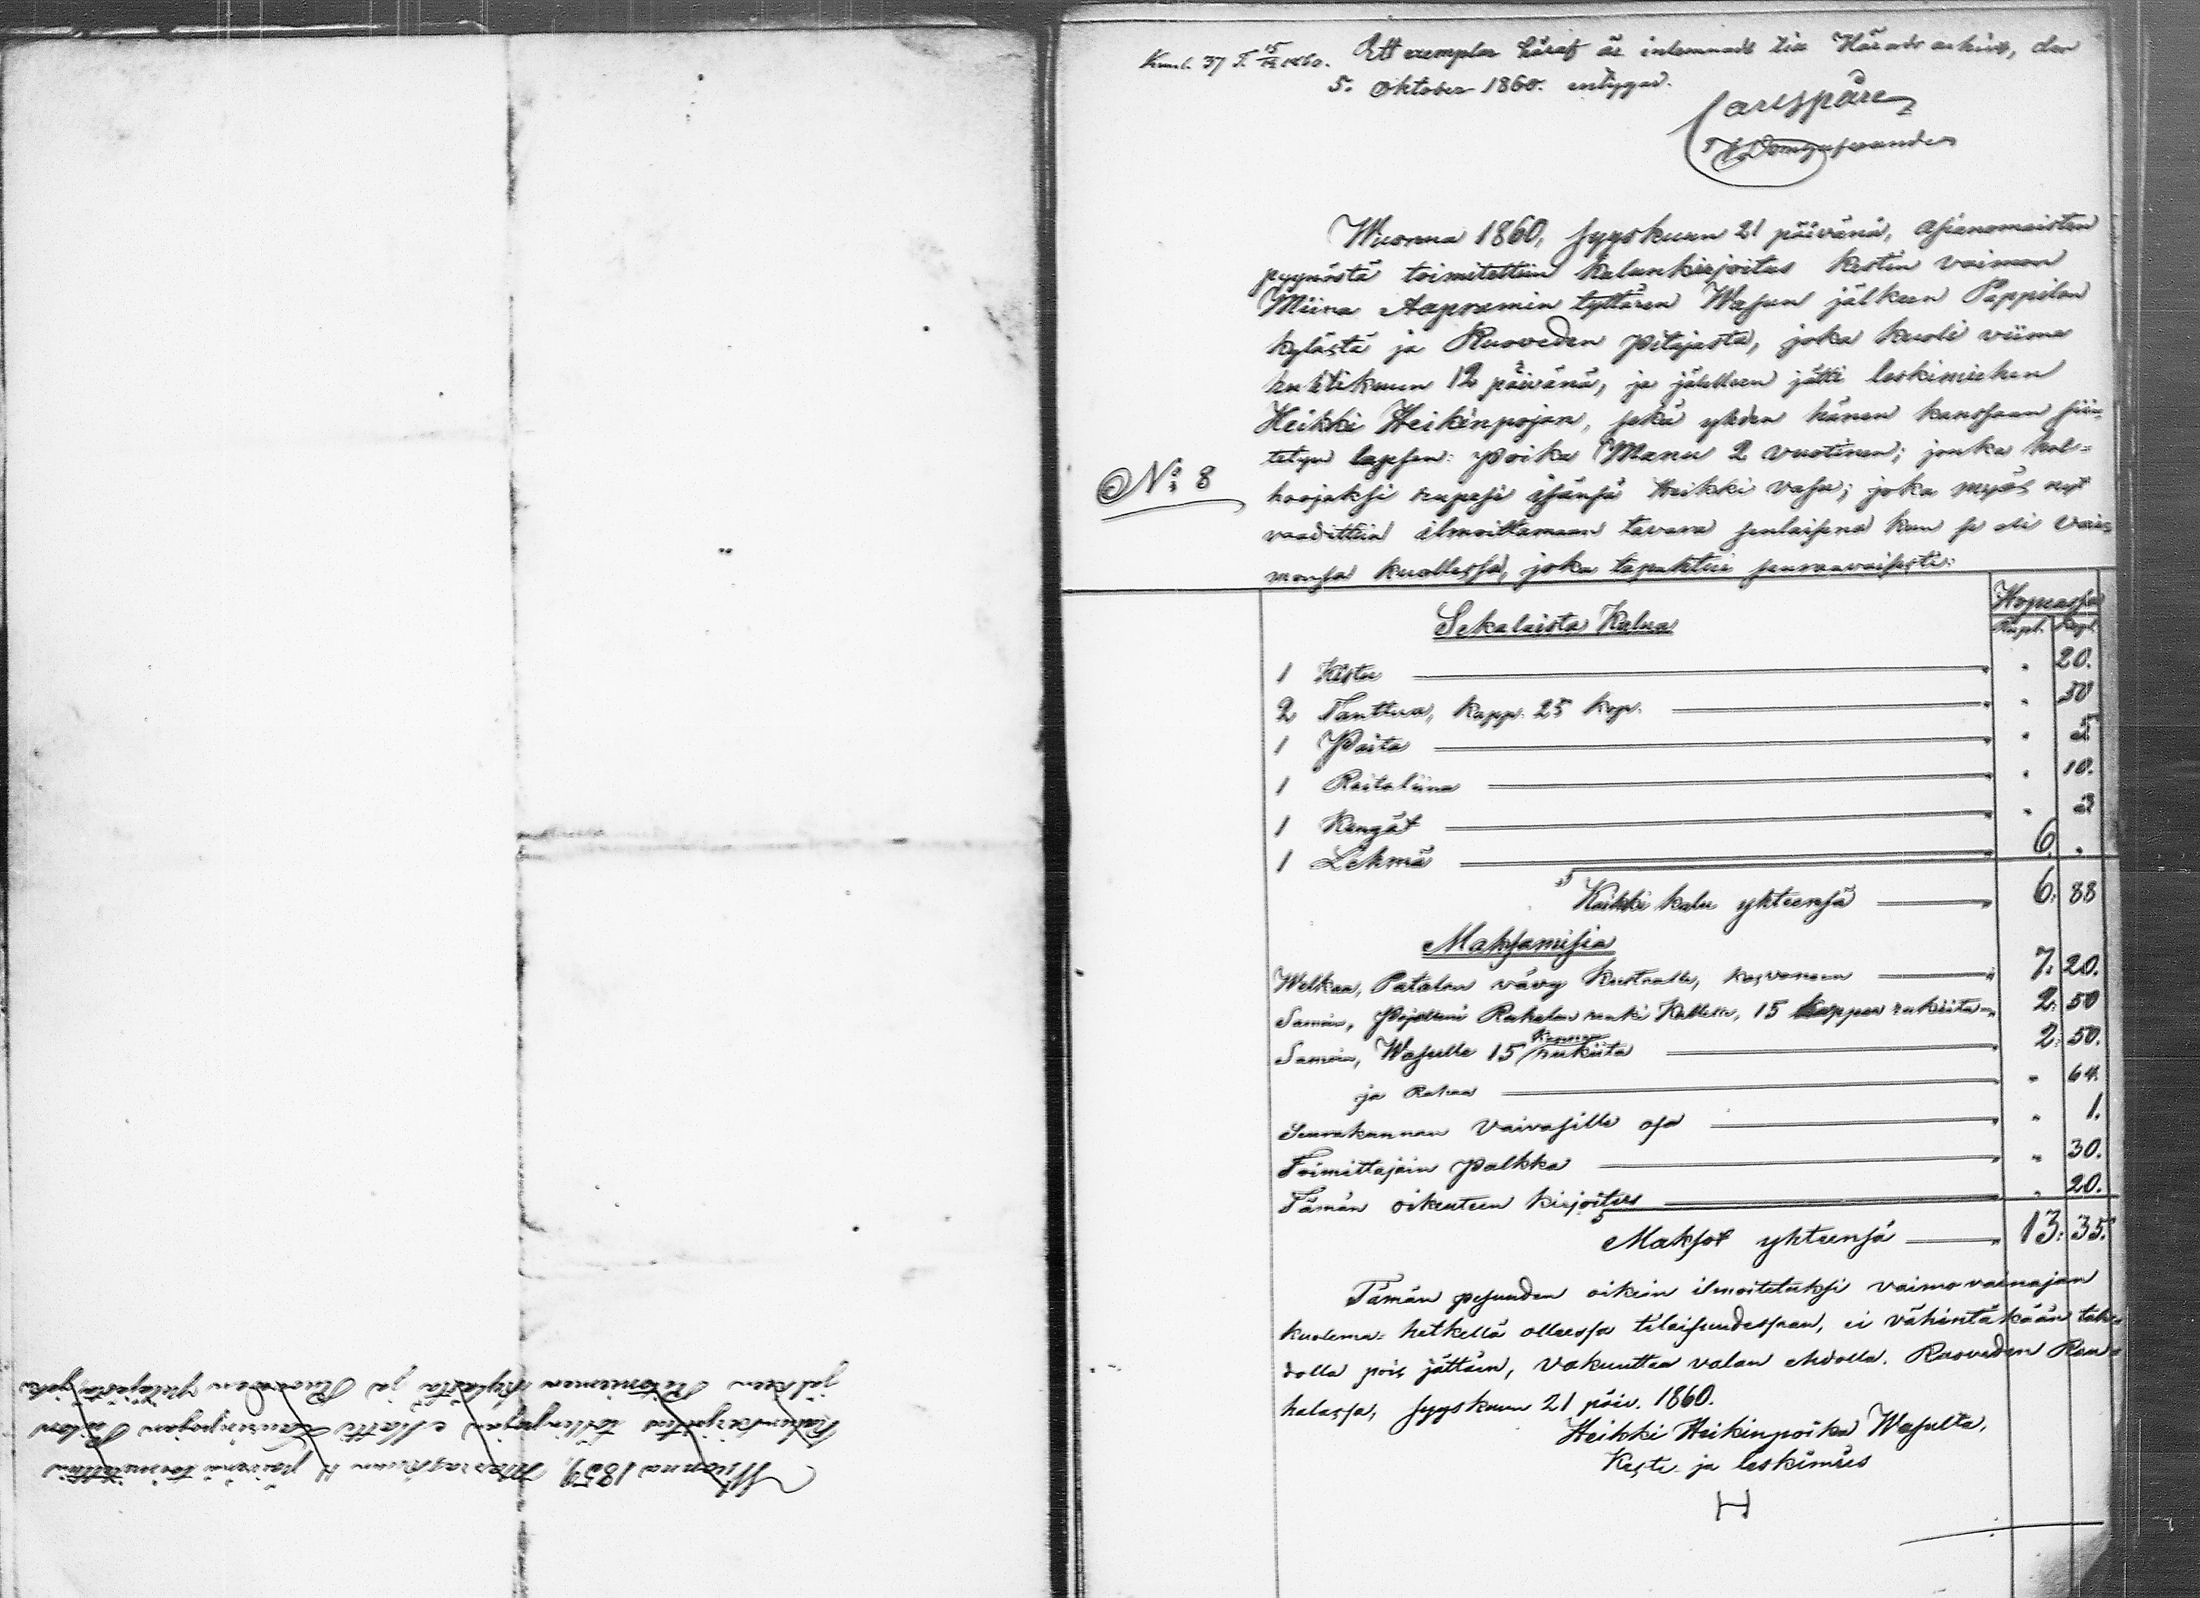 Wuonna 1859, Marraskuun 11 päivänä toimitettiin
Kalunkirjoitus Matti Laurinpojan
jälkeen kylästä ja Ruoveden pitäjästä, joka
Ett exemplar häraf är inlemnadt till Härads arkivet, den
5. Oktober 1860. intygar.
Carl Späre
T. f. Domhafvande
Wuonna 1860, syyskuun 21 päivänä, asianomaisten
pyynöstä toimitettiin kalunkirjoitus Kestin vaimon
Miina Aapramin tyttären Wasun jälkeen Pappilan
kylästä ja Ruoveden Pitäjästä, joka kuoli viime
huhtikuun 12 päivänä, ja jälelleen jätti leskimiehen
Heikki Heikinpojan, sekä yhden hänen kanssaan sii-
tetyn lapsen: Poika Manu 2 vuotinen; jonka hol-
No 8
hoojaksi rupesi isänsä Heikki Vasu; joka myös nyt
vaadittiin ilmoittamaan tavara senlaisena kun se oli vai-
monsa kuollessa, joka tapahtui seuraavaisesti:
Hopeassa
Sekalaista Kalua Rupl. Kopl.
1 Kistu " 20.
2 Tanttua, kapp. 25 kop. " 50
1 Paita " 5
1 Raitaliina " 10.
1 Kengät " 3
1 Lehmä 6. "
Kaikki kalu yhteensä " 6: 88
Maksamisia
Welkaa, Patalan vävy Kustaalle, kasvoneen " 7: 20.
Samoin, Rahalan renki Kallelle, 15 kappaa rukiita " 2: 50
Samoin, Wasulle 15 kappaa rukiita " 2: 50.
ja Rahaa " " 64.
Seurakunnan Vaivasille osa " " 1.
Toimittajain Palkka " " 30.
Tämän oikeuteen kirjoitus " 20.
Maksot yhteensä " 13: 35.
Tämän pesuuden oikein ilmoitetuksi vaimo vainajan
kuolema-hetkellä ollessa tilaisuudessaan, ei vähintäkään tah-
dolla pois jättäin, vakuuttaa valan ehdolla. Ruoveden Rau-
halassa, syyskuun 21 päiv. 1860.
Heikki Heikinpoika Wasulta,
Kesti- ja leskimies
H